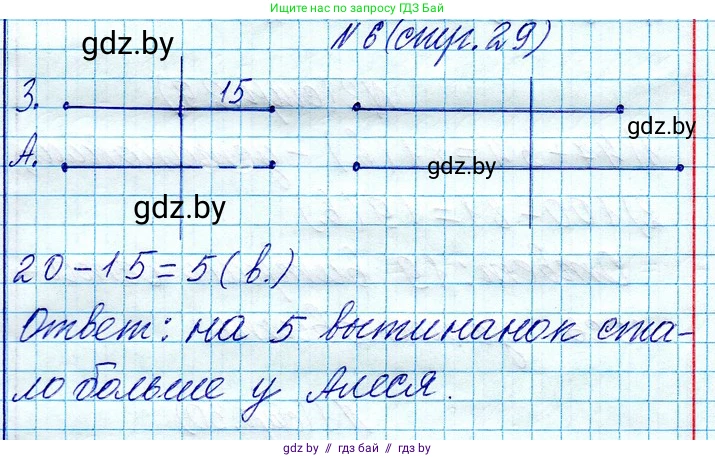 Ищите нас по запросу ГДЗ Бай
gdz.by
№6 (стр. 29)
З. 15
gdz.by
А.
gdz.by
gdz.by
20-15=5(в.)
Ответ: на 5 вытинанок ста-
ло больше у Алеся.
gdz.by // гдз бай // гдз.бу